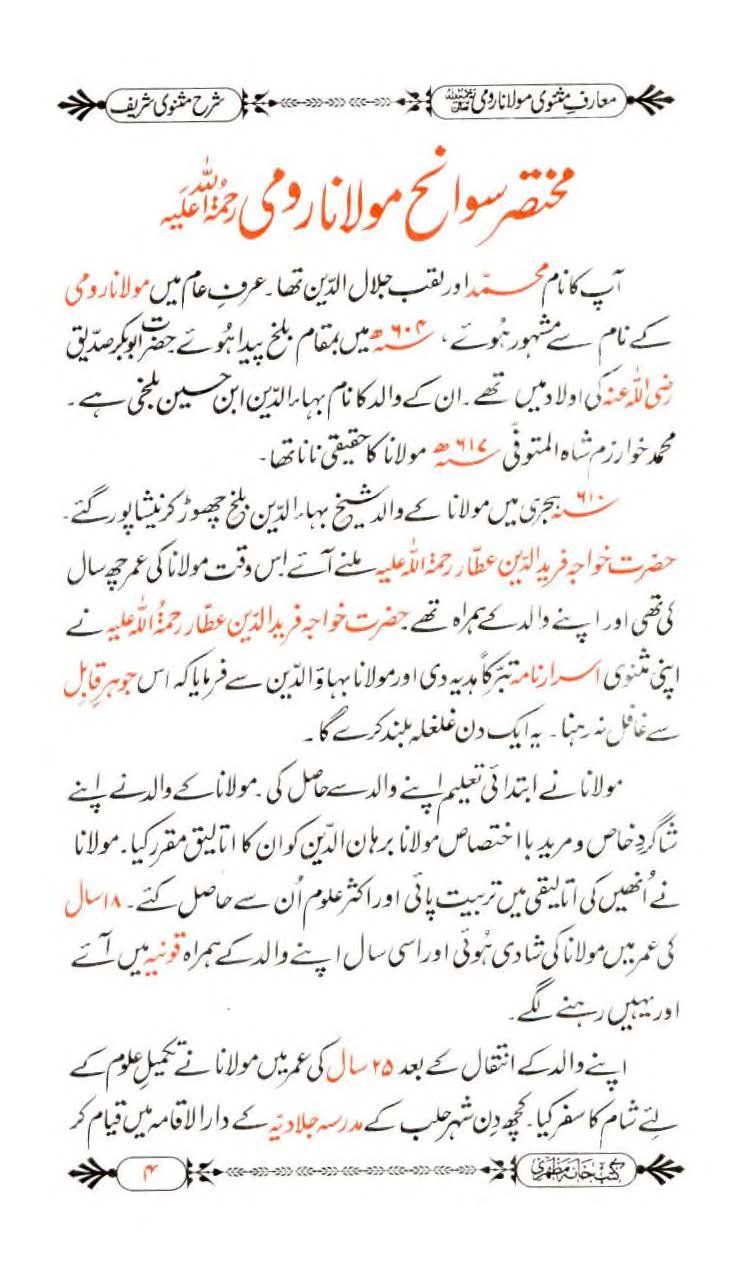 معارفِ مثنوی مولانا رومی رحمۃ اللہ علیہ
شرح مثنوی شریف
مختصر سوانح مولانا رومی رحمۃ اللہ علیہ
آپ کا نام محمّد اور لقب جلال الدّین تھا۔ عرفِ عام میں مولانا رومی
کے نام سے مشہور ہُوئے، سنہ ۶۰۴ھ میں بمقام بلخ پیدا ہُوئے حضرت ابوبکر صدّیق
رضی اللہ عنہ کی اولاد میں تھے۔ ان کے والد کا نام بہاء الدّین ابن حسین بلخی ہے۔
محمد خوارزم شاہ المتوفّٰی سنہ ۶۱۷ھ مولانا کا حقیقی نانا تھا۔
سنہ ۶۱۰ ہجری میں مولانا کے والد شیخ بہاء الدّین بلخ چھوڑ کر نیشاپور گئے۔
حضرت خواجہ فرید الدّین عطّار رحمۃ اللہ علیہ ملنے آئے اس وقت مولانا کی عمر چھ سال
کی تھی اور اپنے والد کے ہمراہ تھے۔ حضرت خواجہ فرید الدّین عطّار رحمۃُ اللہ علیہ نے
اپنی مثنوی اسرار نامہ تبرّکاً ہدیہ دی اور مولانا بہاؤ الدّین سے فرمایا کہ اس جوہرِ قابِل
سے غافل نہ رہنا۔ یہ ایک دن غلغلہ بلند کرے گا۔
مولانا نے ابتدائی تعلیم اپنے والد سے حاصل کی۔ مولانا کے والد نے اپنے
شاگردِ خاص و مرید با اختصاص مولانا برہان الدّین کو ان کا اتالیق مقرر کیا۔ مولانا
نے اُنھیں کی اتالیقی میں تربیت پائی اور اکثر علوم اُن سے حاصل کئے۔ ۱۸ سال
کی عمر میں مولانا کی شادی ہُوئی اور اسی سال اپنے والد کے ہمراہ قونیہ میں آئے
اور یہیں رہنے لگے۔
اپنے والد کے انتقال کے بعد ۲۵ سال کی عمر میں مولانا نے تکمیلِ علوم کے
لئے شام کا سفر کیا۔ کچھ دِن شہر حلب کے مدرسہ جلادیّہ کے دار الاقامہ میں قیام کر
کتب خانہ مظہری
۴